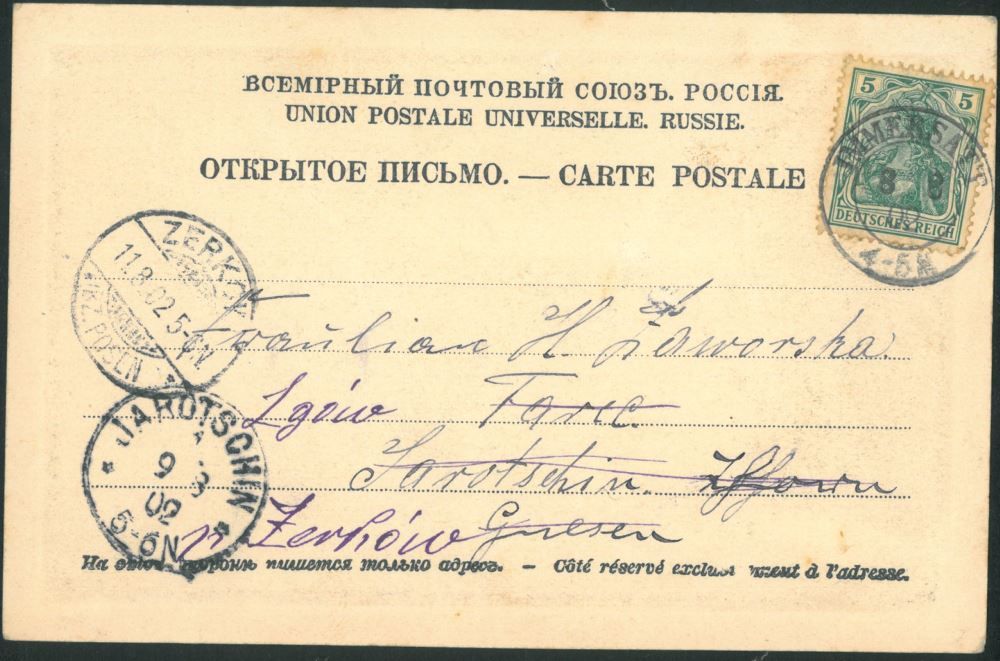 ВСЕМІРНЫЙ ПОЧТОВЫЙ СОЮЗЪ. РОССІЯ.
UNION POSTALE UNIVERSELLE. RUSSIE.
ОТКРЫТОЕ ПИСЬМО. — CARTE POSTALE
5 5
DEUTSCHES REICH
8 8
4-5N
ZERKOW
11.8.02 5-6N
POSEN
Fräulian H. Jaworska.
Lgów
Jarotschin.
p Zerków Gnesen
JAROTSCHIN
9 8
02
5-6N
На этой сторонѣ пишется только адресъ. — Côté réservé exclusivement à l'adresse.